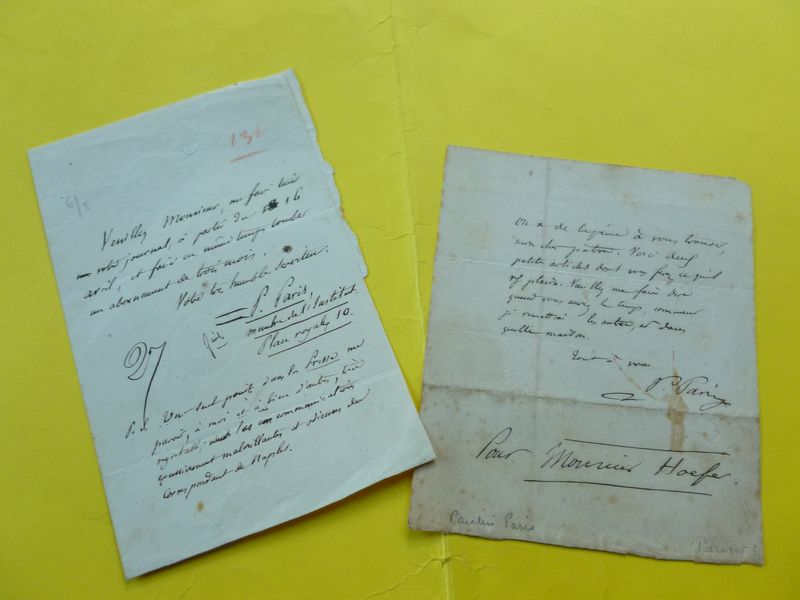 136
6/5
Veuillez Monsieur, me faire tenir
votre journal, à partir du 16
avril, et faire en même temps toucher
un abonnement de trois mois.
Votre très humble serviteur.
P. Paris,
membre de l'Institut
Place royale 10.
27
P. S. Un seul point dans la Presse me
paroît, à moi et à bien d'autres, très
regrettable: les communications
excessivement malveillantes et odieuses du
Correspondant de Naples.
On a de la peine à vous trouver,
mon cher patron. Voici deux
petits articles dont vous ferez ce qu'il
vous plaira. Veuillez me faire dire
quand vous aurez le temps, comment
je remettrai les autres, et dans
quelle maison.
Tout à vous
P. Paris
Pour Monsieur Hoefer.
Paulin Paris